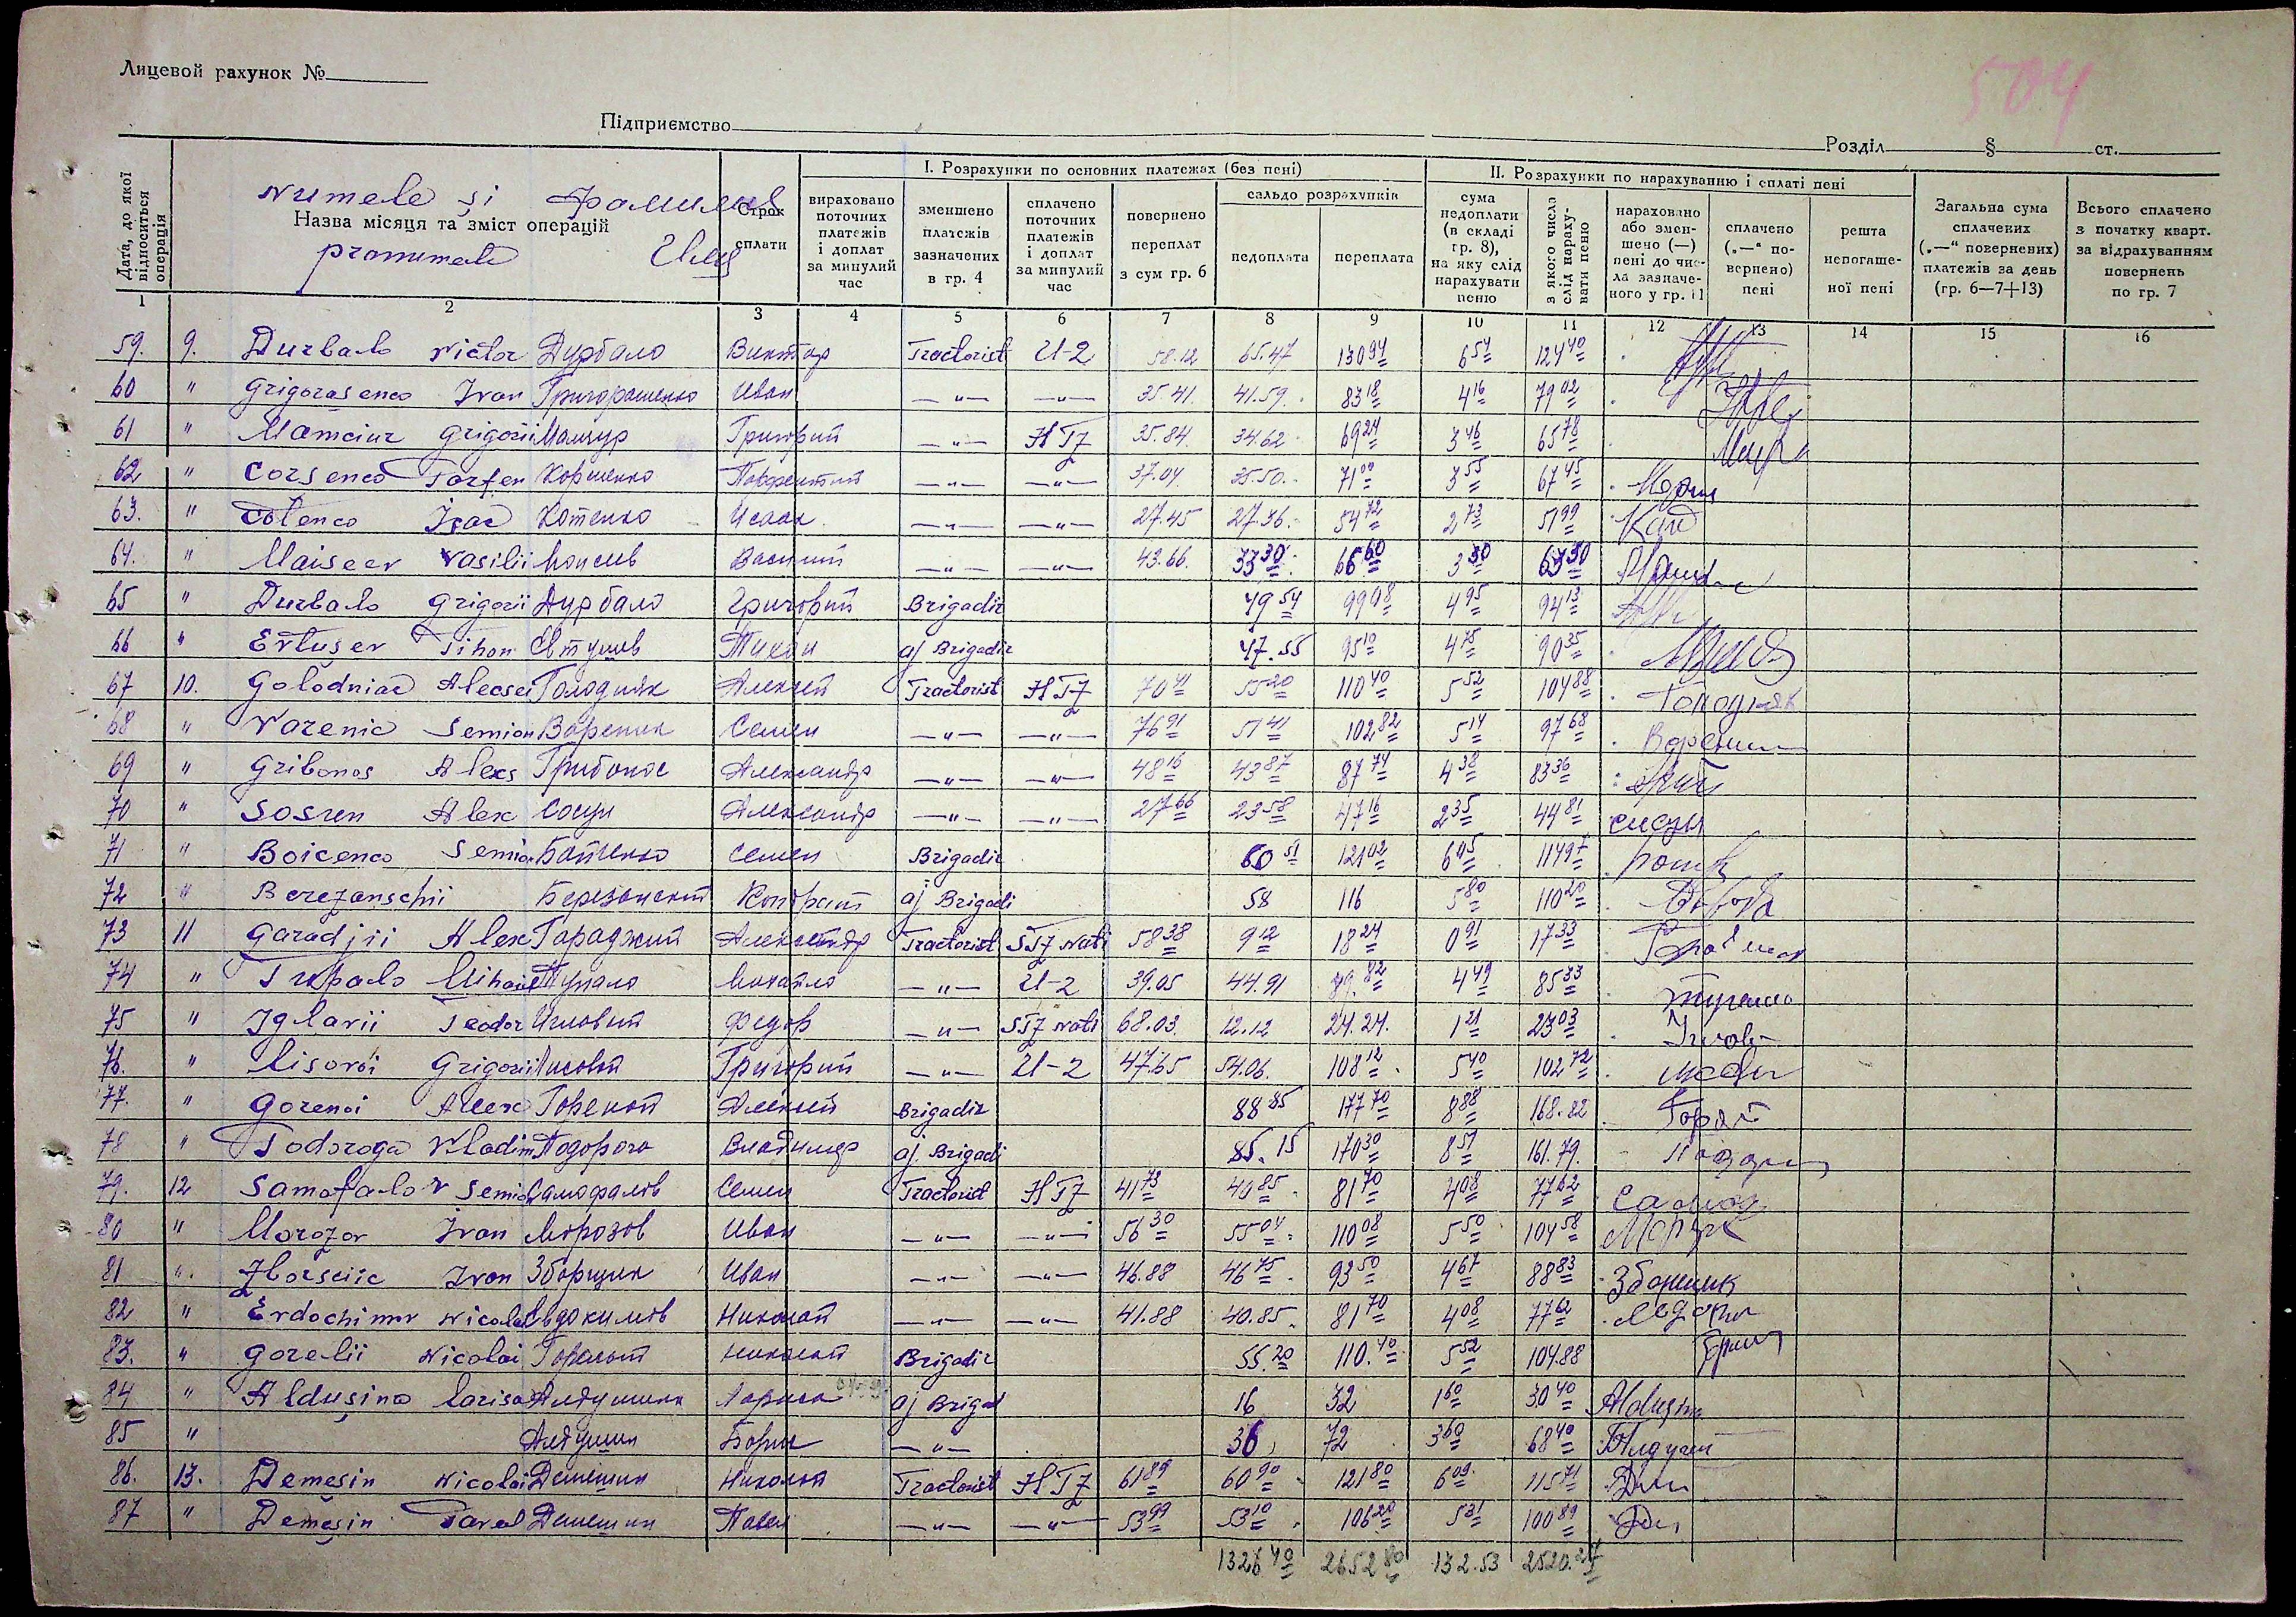 504
Лицевой рахунок №
Підприємство
Розділ § ст.
Дата, до якої відноситься операція
Numele și Фамилия
Назва місяця та зміст операцій
pronumele Имя
Строк сплати
I. Розрахунки по основних платежах (без пені)
вираховано поточних платежів і доплат за минулий час
зменшено платежів зазначених в гр. 4
сплачено поточних платежів і доплат за минулий час
повернено переплат з сум гр. 6
сальдо розрахунків
недоплата переплата
II. Розрахунки по нарахуванню і сплаті пені
сума недоплати (в складі гр. 8), на яку слід нарахувати пеню
з якого числа слід нарахувати пеню
нараховано або зменшено (—) пені до числа зазначеного у гр. 11
сплачено („—“ повернено) пені
решта непогашеної пені
Загальна сума сплачених („—“ повернених) платежів за день (гр. 6—7+13)
Всього сплачено з початку кварт. за відрахуванням повернень по гр. 7
1 2 3 4 5 6 7 8 9 10 11 12 13 14 15 16
59. 9. Durbalo Victor Дурбало Виктор Tractorist U-2 58.12 65.47 130 94 6 54 124 40
60 " Grigorasenco Ivan Григорашенко Иван —"— —"— 35.41. 41.59. 83 18 4 16 79 02
61 " Mamciur Grigorii Мамчур Григорий —"— HTZ 35.84. 34.62 69 24 3 46 65 78
62 " Corsenco Parfen Коршенко —"— —"— 37.04. 35.50. 71 00 3 55 67 45
63. " Cotenco Isac Котенко Исаак —"— —"— 27.45 27.36. 54 72 2 73 51 99
64. " Maiseev Vasilii Моисеев Василий —"— —"— 43.66. 33 30. 66 60 3 30 63 30
65 " Durbalo Grigorii Дурбало Григорий Brigadir 49 54 99 08 4 95 94 13
66 " Evtușev Tihon Евтушев Тихон aj Brigadir 47.55 95 10 4 75 90 35
67 10. Golodniac Alecsei Голодняк Алексей Tractorist HTZ 70 41 55 20 110 40 5 52 104 88 Голодняк
68 " Varenic Semion Вареник Семен —"— —"— 76 91 51 41 102 82 5 14 97 68
69 " Gribonos Alecs Грибонос Александр —"— —"— 48 16 43 87 87 74 4 38 83 36
70 " Sosien Alex Сосун Александр —"— —"— 27 66 23 58 47 16 2 35 44 81
71 " Boicenco Semion Бойченко Семен Brigadir 60 51 121 02 6 05 114 97
72 " Berezanschii Березанский Кондрат aj Brigadi 58 116 5 80 110 20
73 11 Garadjii Alex Гараджий Александр Tractorist STZ Nati 58 38 9 12 18 24 0 91 17 33
74 " Tupalo Mihail Тупало Михайло —"— U-2 39.05 44.91 89. 82 4 49 85 33
75 " Iglavii Teodor Игловий Федор —"— STZ Nati 68.03. 12.12 24.24. 1 21 23 03
76. " Lisovoi Grigorii Лисовой Григорий —"— U-2 47.65 54.06. 108 12. 5 40 102 72
77. " Gorenoi Alexe Алексей Brigadir 88 85 177 70 8 88 168.82
78 " Podoroga Vladim Подорога Владимир aj. Brigadi 85.15 170 30 8 51 161.79.
79. 12 Samofalov Semio Самофалов Семен Tractorist HTZ 41 73 40 85. 81 70 4 08 77 62
80 " Morozov Ivan Морозов Иван —"— —"— 56 30 55 04. 110 08 5 50 104 58
81 " Zborsciic Ivan Зборщик Иван —"— —"— 46.88 46 75. 93 50 4 67 88 83 Зборщик
82 " Evdochimov Nicolai Евдокимов Николай —"— —"— 41.88 40.85. 81 70 4 08 77 62
83. " Gorelii Nicolai Горелый Николай Brigadir 55.20 110.40 5 52 104.88
84 " Aldușina Larisa Алдушина Лариса aj Brigad 16 32 1 60 30 40
85 " Алдушин Борис —"— 36 72 3 60 68 40
86. 13. Demeșin Nicolai Демешин Николай Tractorist HTZ 61 89 60 90 121 80 6 09 115 71
87 " Demeșin Pavel Демешин Павел —"— —"— 53 99 53 10 106 20 5 31 100 89
1326 40 2652 80 132.53 2520.27